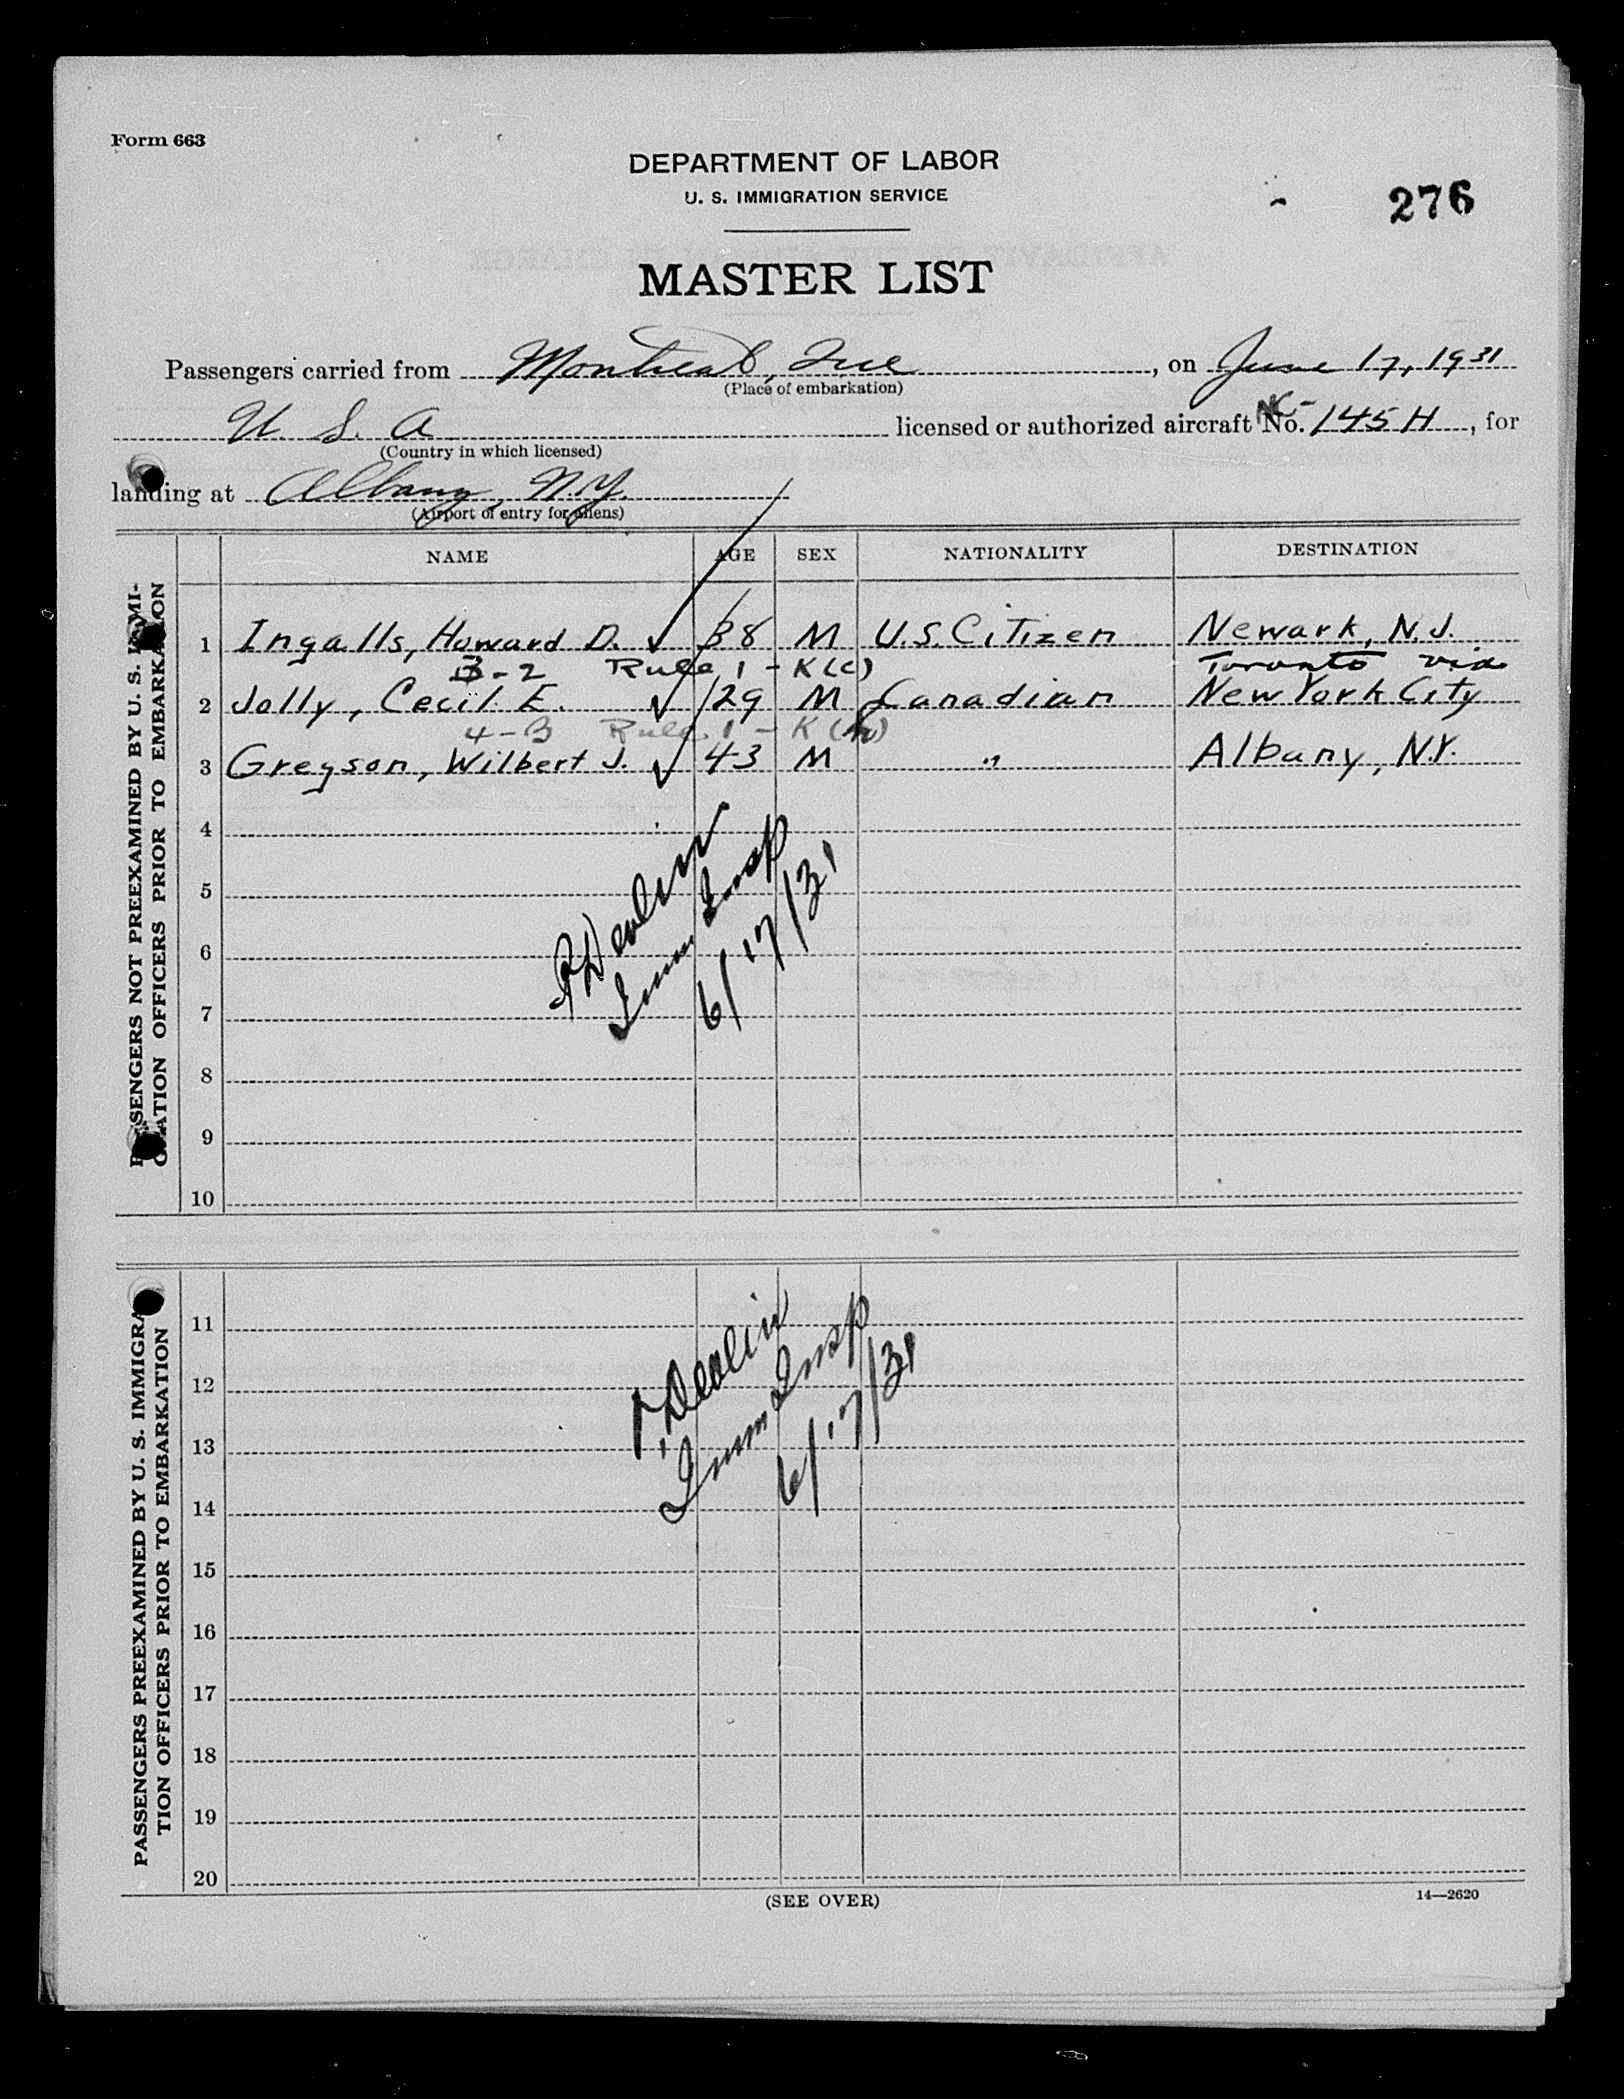 Form 663
DEPARTMENT OF LABOR
U. S. IMMIGRATION SERVICE
276
MASTER LIST
Passengers carried from Montreal, Que , on June 17, 1931
(Place of embarkation)
U. S. A licensed or authorized aircraft No. NC-145H, for
(Country in which licensed)
landing at Albany, N.Y.
(Airport of entry for aliens)
NAME AGE SEX NATIONALITY DESTINATION
PASSENGERS NOT PREEXAMINED BY U. S. IMMI-
GRATION OFFICERS PRIOR TO EMBARKATION
1 Ingalls, Howard D. ✓ 38 M U.S. Citizen Newark, N.J.
3-2 Rule 1 - K(c) Toronto via
2 Jolly, Cecil E. ✓ 29 M Canadian New York City
4-B Rule 1 - K
3 Gregson, Wilbert J. ✓ 43 M " Albany, N.Y.
4
5
6
7
8
9
10
Devlin
Imm Insp
6/17/31
PASSENGERS PREEXAMINED BY U. S. IMMIGRA-
TION OFFICERS PRIOR TO EMBARKATION
11
12
13
14
15
16
17
18
19
20
Devlin
Imm Insp
6/17/31
(SEE OVER)
14—2620